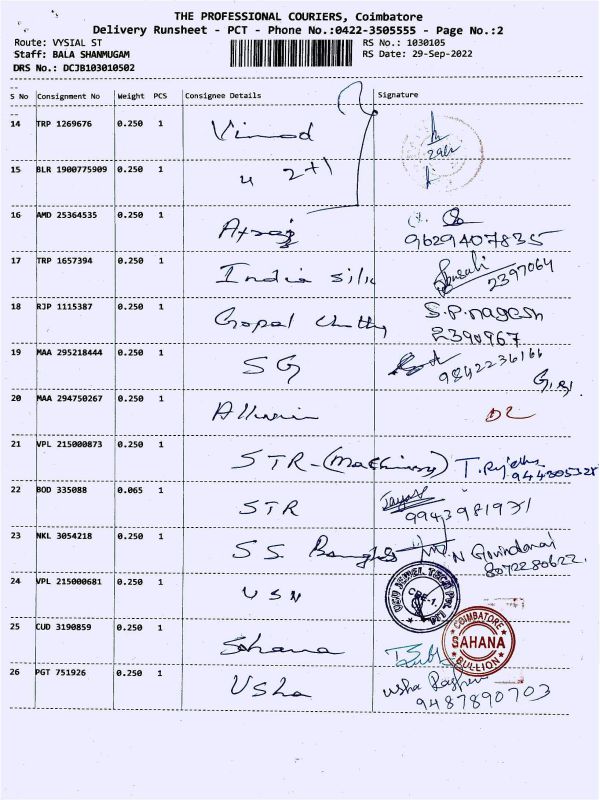 THE PROFESSIONAL COURIERS, Coimbatore
Delivery Runsheet - PCT - Phone No.:0422-3505555 - Page No.:2
Route: VYSIAL ST RS No.: 1030105
Staff: BALA SHANMUGAM RS Date: 29-Sep-2022
DRS No.: DCJB103010502
S No Consignment No Weight PCS Consignee Details Signature
14 TRP 1269676 0.250 1 Vinod
15 BLR 1900775909 0.250 1 2+1
16 AMD 25364535 0.250 1
9629407835
17 TRP 1657394 0.250 1 India silk
2397064
18 RJP 1115387 0.250 1 Gopal S.P.nagesh
2390967
19 MAA 295218444 0.250 1 SG
9842236166
20 MAA 294750267 0.250 1
21 VPL 215000873 0.250 1 STR-(Machinery)
22 BOD 335088 0.065 1 STR
23 NKL 3054218 0.250 1 S S
8072280622.
24 VPL 215000681 0.250 1 USN
CBE-1.
25 CUD 3190859 0.250 1 Sahana
COIMBATORE
SAHANA
BULLION
26 PGT 751926 0.250 1 Usha
usha
9487890703